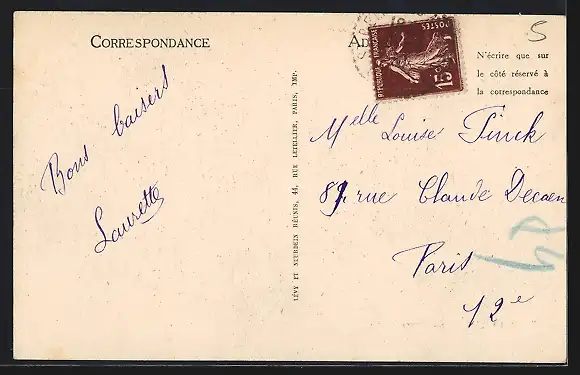 CORRESPONDANCE
Bons baisers
Laurette
LÉVY ET NEURDEIN RÉUNIS, 44, RUE LETELLIER, PARIS, IMP.
RÉPUBLIQUE FRANÇAISE
POSTES
15c
5
N'écrire que sur
le côté réservé à
la correspondance
Melle Louise Finck
89 rue Claude Decaen
Paris
12e